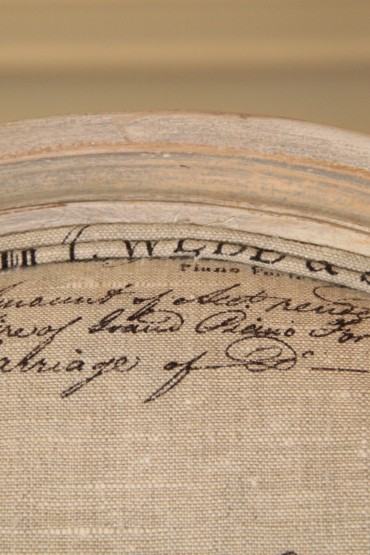 Piano Forte
Amount of Acct rende
ire of Grand Piano For
arriage of Do